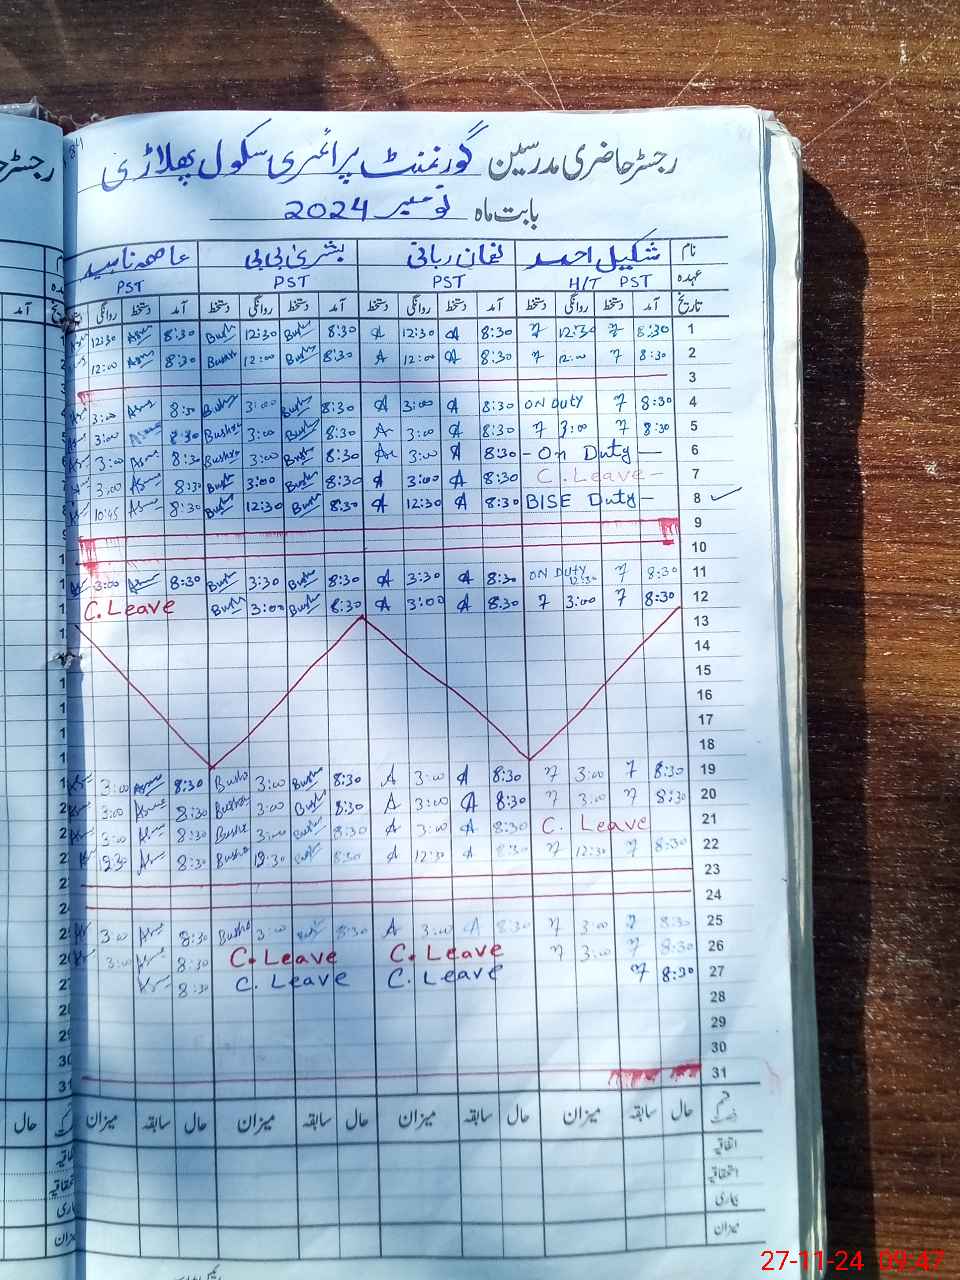 رجسٹر حاضری مدرسین گورنمنٹ پرائمری سکول پھلاڑی
بابت ماہ نومبر 2024
نام شکیل احمد نعمان ربانی بشریٰ بی بی عاصمہ ناہید
عہدہ H/T PST PST PST PST
تاریخ آمد دستخط روانگی دستخط آمد دستخط روانگی دستخط آمد دستخط روانگی دستخط آمد دستخط روانگی
1 8:30 7 12:30 7 8:30 A 12:30 A 8:30 Bush 12:30 Bush 8:30 Asm 12:30
2 8:30 7 12:00 7 8:30 A 12:00 A 8:30 Bush 12:00 Bush 8:30 Asm 12:00
3
4 8:30 7 ON DUTY 8:30 A 3:00 A 8:30 Bush 3:00 Bush 8:30 Asm 3:00
5 8:30 7 3:00 7 8:30 A 3:00 A 8:30 Bush 3:00 Bush 8:30 3:00
6 - On Duty - 8:30 A 3:00 A 8:30 Bush 3:00 Bush 8:30 Asm 3:00
7 C. Leave - 8:30 A 3:00 A 8:30 Bush 3:00 Bush 8:30 Asm 3:00
8 BISE Duty - 8:30 A 12:30 A 8:30 Bush 12:30 Bush 8:30 Asm 10:45
9
10
11 8:30 7 ON DUTY 12:30 8:30 A 3:30 A 8:30 Bush 3:30 Bush 8:30 3:00
12 8:30 7 3:00 7 8:30 A 3:00 A 8:30 Bush 3:00 Bush C. Leave
13
14
15
16
17
18
19 8:30 7 3:00 7 8:30 A 3:00 A 8:30 Bush 3:00 Bush 8:30 3:00
20 8:30 7 3:00 7 8:30 A 3:00 A 8:30 Bush 3:00 Bush 8:30 3:00
21 C. Leave 8:30 A 3:00 A 8:30 Bush 3:00 Bush 8:30 3:00
22 8:30 7 12:30 7 8:30 A 12:30 A 8:30 12:30 Bush 8:30 12:30
23
24
25 8:30 7 3:00 7 8:30 A 3:00 A 8:30 3:00 Bush 8:30 3:00
26 8:30 7 3:00 7 C. Leave C. Leave 8:30 3:00
27 8:30 7 C. Leave C. Leave 8:30
28
29
30
31
حال سابقہ میزان حال سابقہ میزان حال سابقہ میزان حال سابقہ میزان
اتفاقیہ
استحقاقیہ
بیماری
میزان
27-11-24 09:47